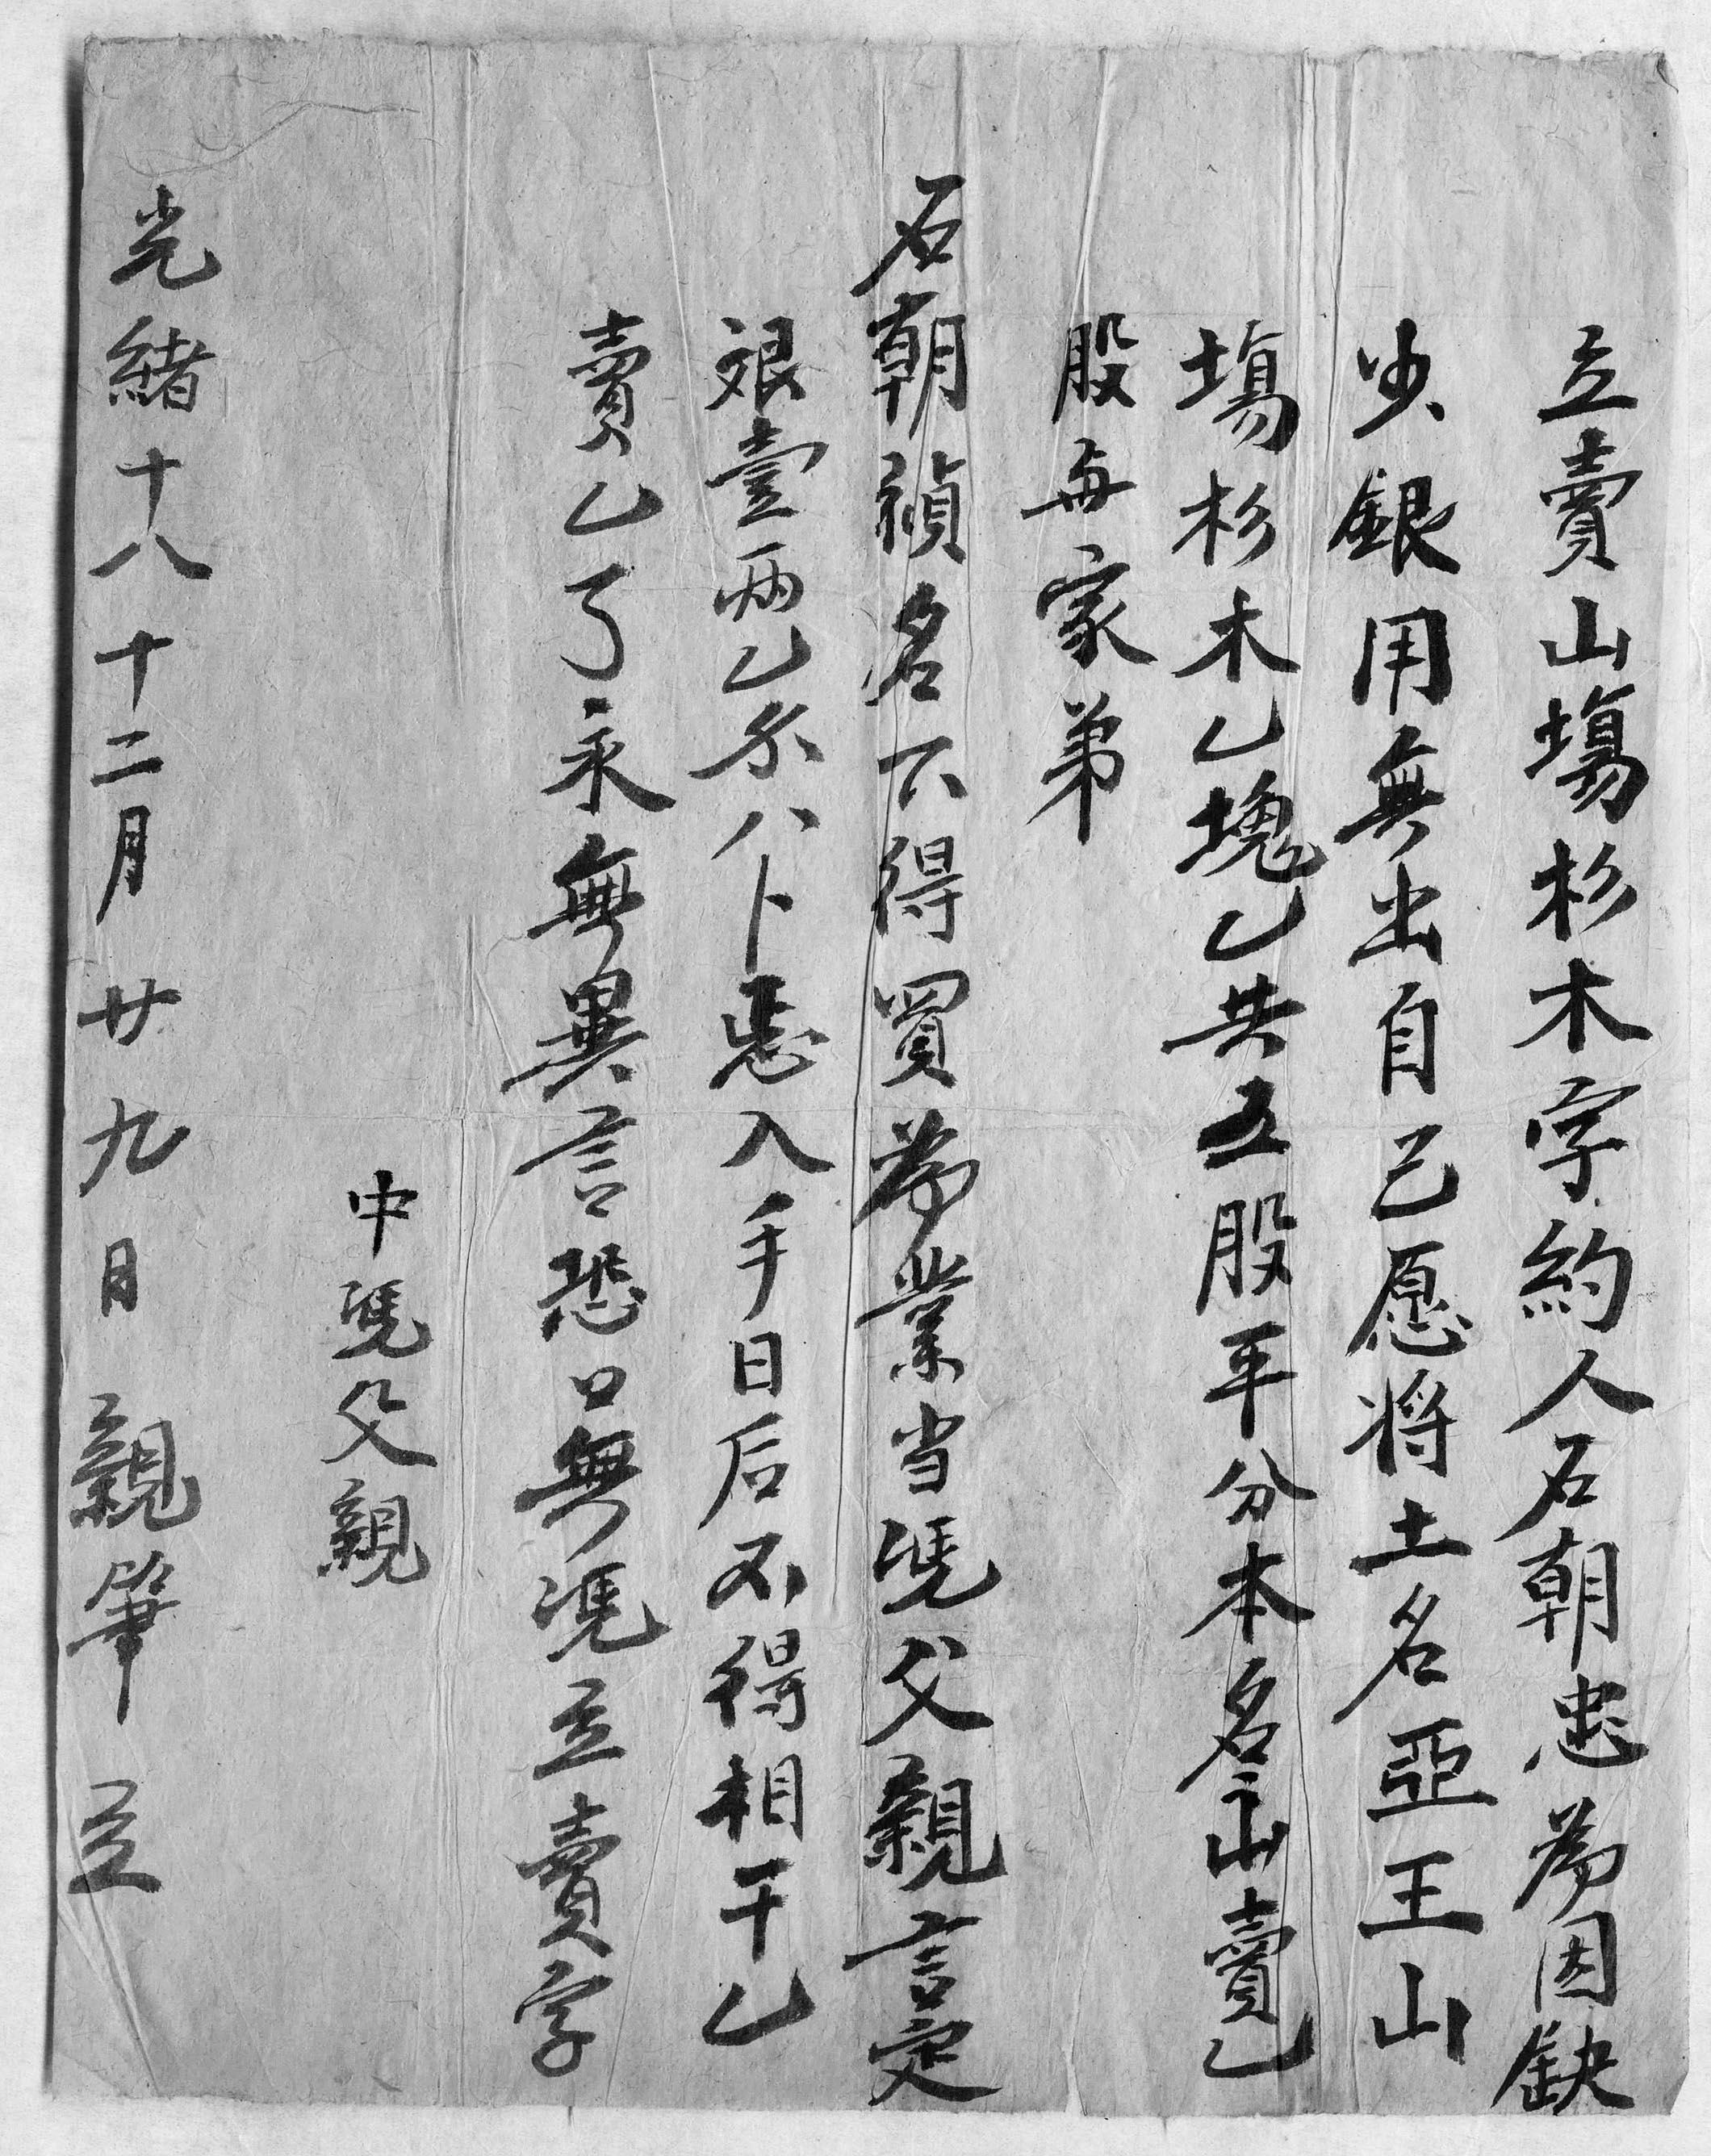 立賣山塲杉木字約人石朝忠為因缺
少銀用無出自己愿将土名亞王山
塲杉木乙塊乙共五股平分本名山賣乙
股与家弟
石朝禎名下得買為業当凴父親言定
艮壹兩乙尔八卜悉入手日后不得相干乙
賣乙了永無異言恐口無凴立賣字
中凴父親
光緒十八十二月廿九日親筆立